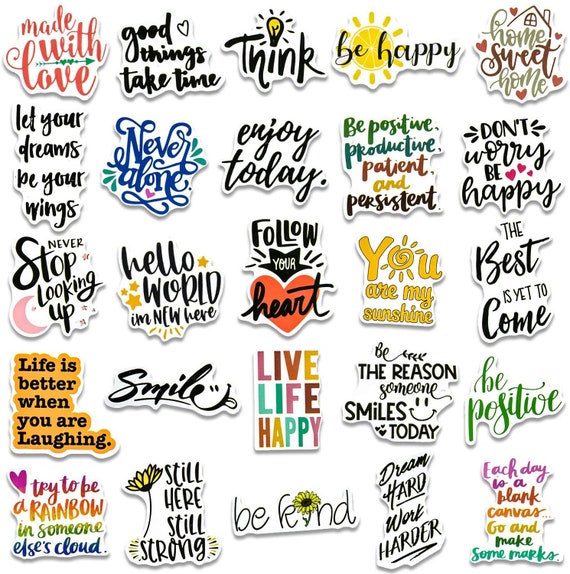 made
with
love
good
things
take time
Think
be happy
home
sweet
home
let your
dreams
be your
wings
Never
alone
enjoy
today.
Be positive,
productive,
patient,
and
persistent.
DON'T
worry
BE
happy
NEVER
Stop
Looking
up
hello
WORLD
im NEW here
FOLLOW
YOUR
heart
You
are my
sunshine
THE
Best
IS YET TO
Come
Life is
better
when
you are
Laughing.
Smile
LIVE
LIFE
HAPPY
Be
THE REASON
someone
SMILES
TODAY
be
positive
try to be
a RAINBOW
in someone
else's cloud.
STILL
HERE
STILL
STRONG.
be kind
Dream
HARD
Work
HARDER
Each day
is a
blank
canvas...
Go and
make
some marks.